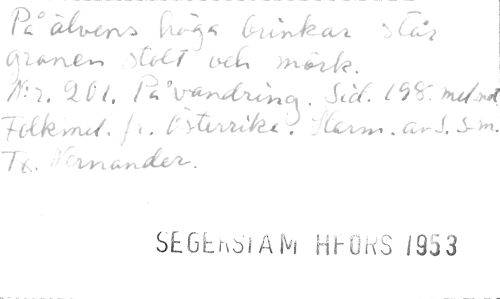 På älvens höga brinkar står
granen stolt och mörk.
N:r. 201. På vandring. Sid. 198. med not
Folkmel. fr. Österrike. Harm. av S. S-m.
Tx. Nernander.
SEGERSTAM HFORS 1953